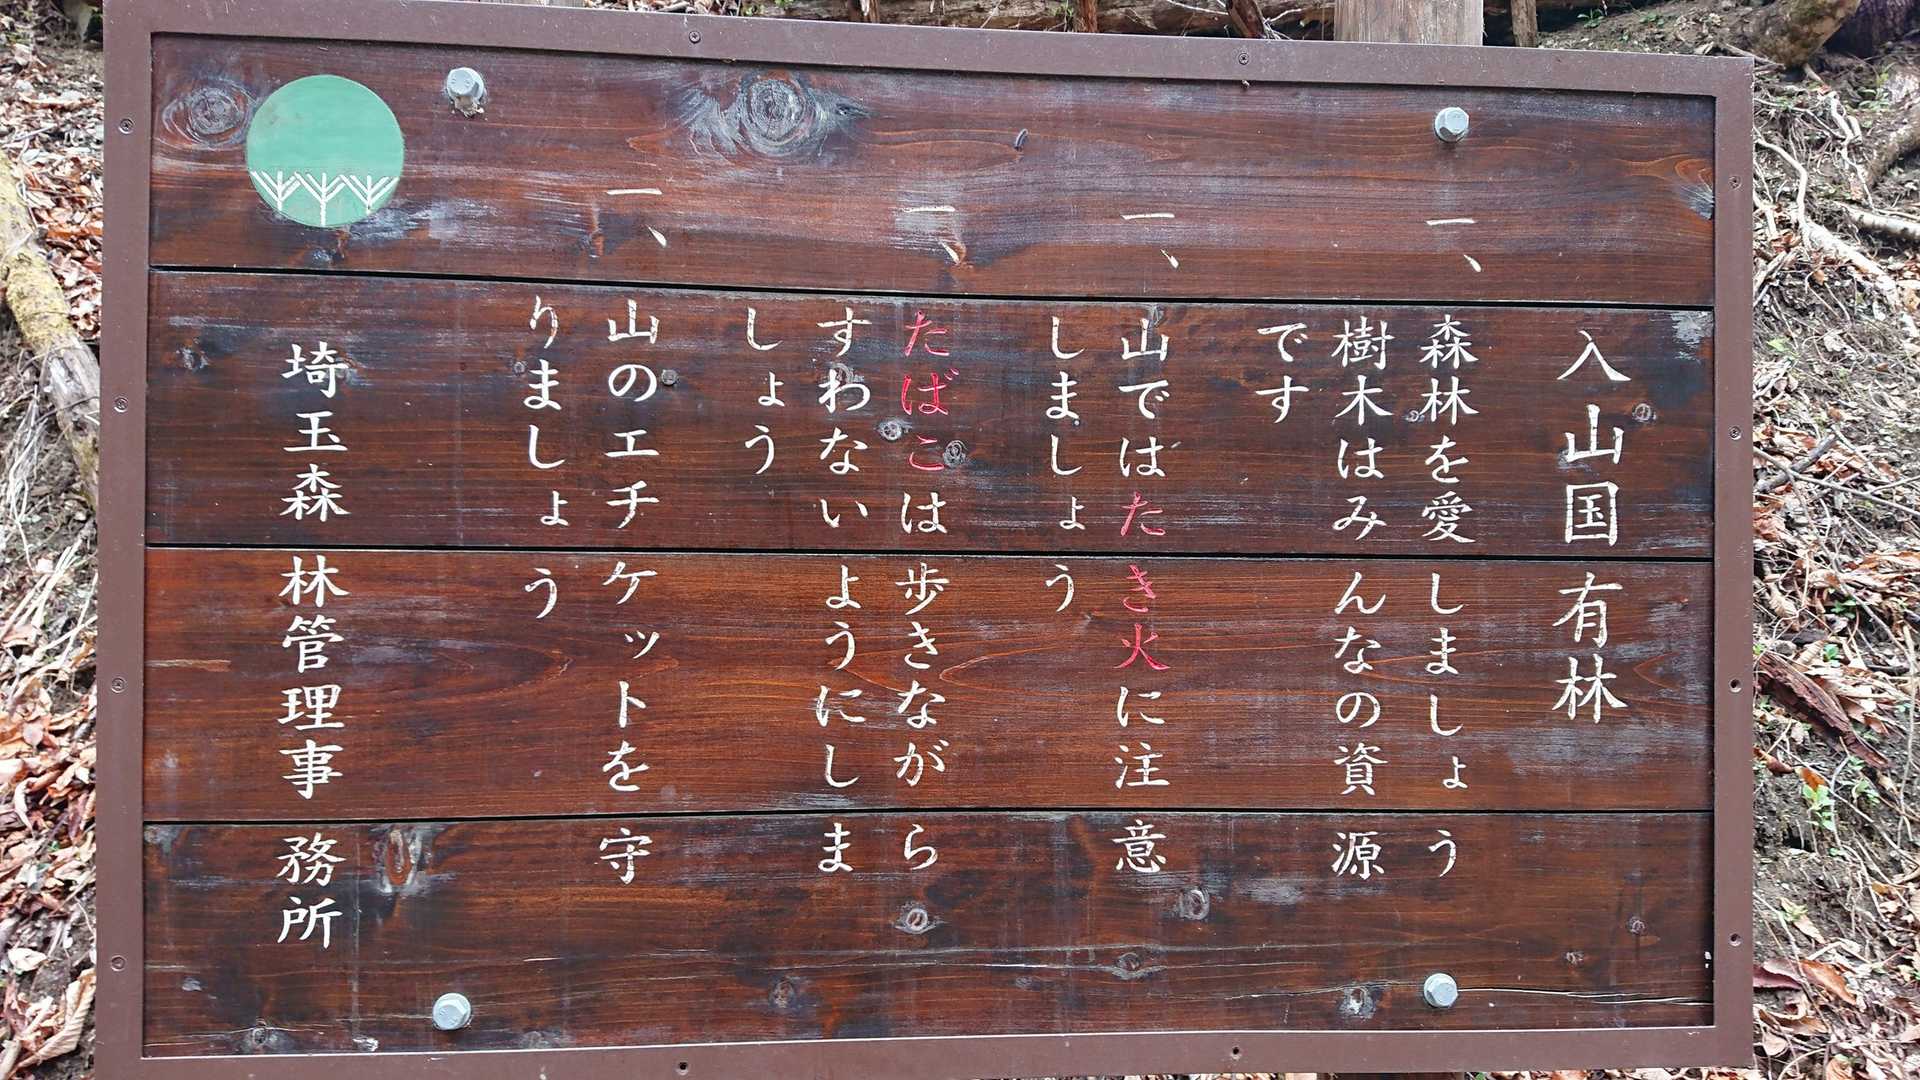 入山国有林
一、森林を愛しましょう
樹木はみんなの資源
です
一、山ではたき火に注意
しましょう
一、たばこは歩きながら
すわないようにしま
しょう
一、山のエチケットを守
りましょう
埼玉森林管理事務所